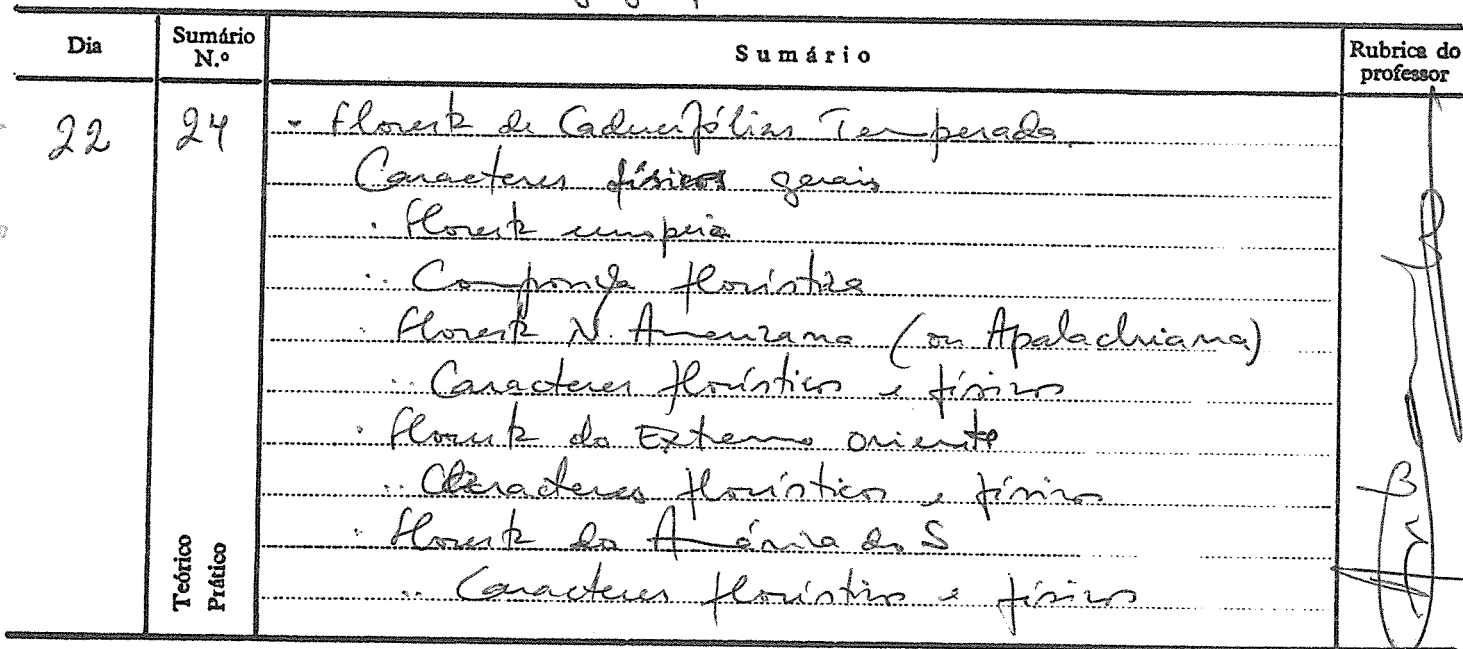 Dia
Sumário N.º
Sumário
Rubrica do professor
22
24
- Floresta de Caducifólias Temperada.
Caracteres físicos gerais
. Floresta europeia
.. Composição florística
. Floresta N. Americana (ou Apalachiana)
.. Caracteres florísticos e físicos
. Floresta do Extremo Oriente
.. Caracteres florísticos e físicos
. Floresta da América do S
.. Caracteres florísticos e físicos
Teórico
Prático